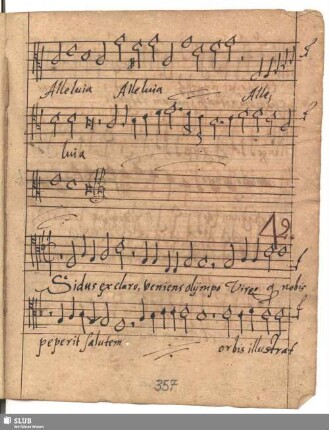 Alleluia Alleluia Alle,
luia
49.
Sidus ex claro, veniens olÿmpo Virgo q nobis
peperit salutem orbis illustrat
357
SLUB
Wir führen Wissen.